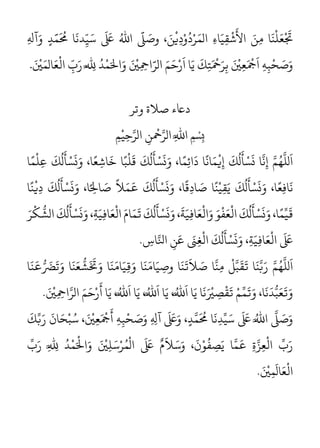 تَجْعَلْنَا مِنَ الأَشْقِيَاءِ المَرْدُوْدِيْنَ، وصَلّى اللهُ عَلَى سَيِّدنَا مُحَمَّدٍ وَآلِهِ
وَصَحْبِهِ أَجْمَعِيْنَ بِرَحْمَتِكَ يَا أَرْحَمَ الرّاحِمِيْنَ وَالحَمْدُ للهِ رَبِّ الْعَالَمِيْنَ.
دعاء صلاة وتر
بِسْمِ اللهِ الرَّحْمنِ الرَّحِيْمِ
اَللَّهُمَّ إِنَّا نَسْأَلُكَ إِيْمَانَا دَائِمًا، وَنَسْأَلُكَ قَلْبًا خَاشِعًا، وَنَسْأَلُكَ عِلْمًا
نَافِعًا، وَنَسْأَلُكَ يَقِيْنًا صَادِقًا، وَنَسْأَلُكَ عَمَلاً صَالِحًا، وَنَسْأَلُكَ دِيْنًا
قَيِّمًا، وَنَسْأَلُكَ الْعَفْوَ وَالْعَافِيَةَ، وَنَسْأَلُكَ تَمَامَ الْعَافِيَةِ، وَنَسْأَلُكَ الشُّكْرَ
عَلَى الْعَافِيَةِ، وَنَسْأَلُكَ الْغِنَى عَنِ النَّاسِ.
اَللَّهُمَّ رَبَّنَا تَقَبَّلْ مِنَّا صَلاَتَنَا وَصِيَامَنَا وَقِيَامَنَا وَتَخَشُّعَنَا وَتَضَرُّعَنَا
وَتَعَبُّدَنَا، وَتَمِّمْ تَقْصِيْرَنَا يَا اَللهُ يَا اَللهُ، يَا اَللهُ، يَا اَللهُ، يَا أَرْحَمَ الرَّاحِمِيْنَ.
وَصَلَّى اللهُ عَلَى سَيِّدِنَا مُحَمَّدٍ، وَعَلَى آلِهِ وَصَحْبِهِ أَجْمَعِيْنَ، سُبْحَانَ رَبِّكَ
رَبِّ الْعِزَّةِ عَمَّا يَصِفُوْنَ، وَسَلاَمٌ عَلَى الْمُرْسَلِيْنَ وَالْحَمْدُ لِلّهِ رَبِّ
الْعَالَمِيْنَ.